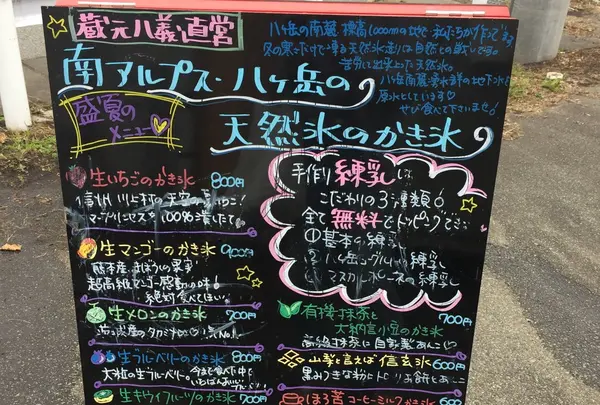 蔵元八義直営
八ヶ岳の南麓 標高1000mの地で私たちが作ってます
冬の寒さだけで凍る天然氷造りは自然との戦いです。
苦労して出来上った天然氷。
八ヶ岳南麓湧水群の地下水を
原水としています♡
ぜひ食べて下さいませ!
南アルプス・八ヶ岳の
天然氷のかき氷
盛夏の
メニュー
生いちごのかき氷 800円
信州 川上村の
100%
生マンゴーのかき氷 900円
熊本産 まぼろしの果実
超高級マンゴー 感動の味!
絶対食べてほしい。
生メロンのかき氷 700円
生ブルーベリーのかき氷 800円
大粒の生ブルーベリー。
生キウイフルーツのかき氷 700円
手作り練乳は
こだわりの3種類!
全て無料でトッピングでき
①基本の練乳
②八ヶ岳ヨーグルト練乳
③マスカルポーネの練乳
有機抹茶と
大納言小豆のかき氷 700円
高級抹茶に自家製あんこ♡
山梨と言えば信玄氷 600円
黒みつきな粉にトロリお餅とあんこ
ほろ苦コーヒーミルクかき氷 600